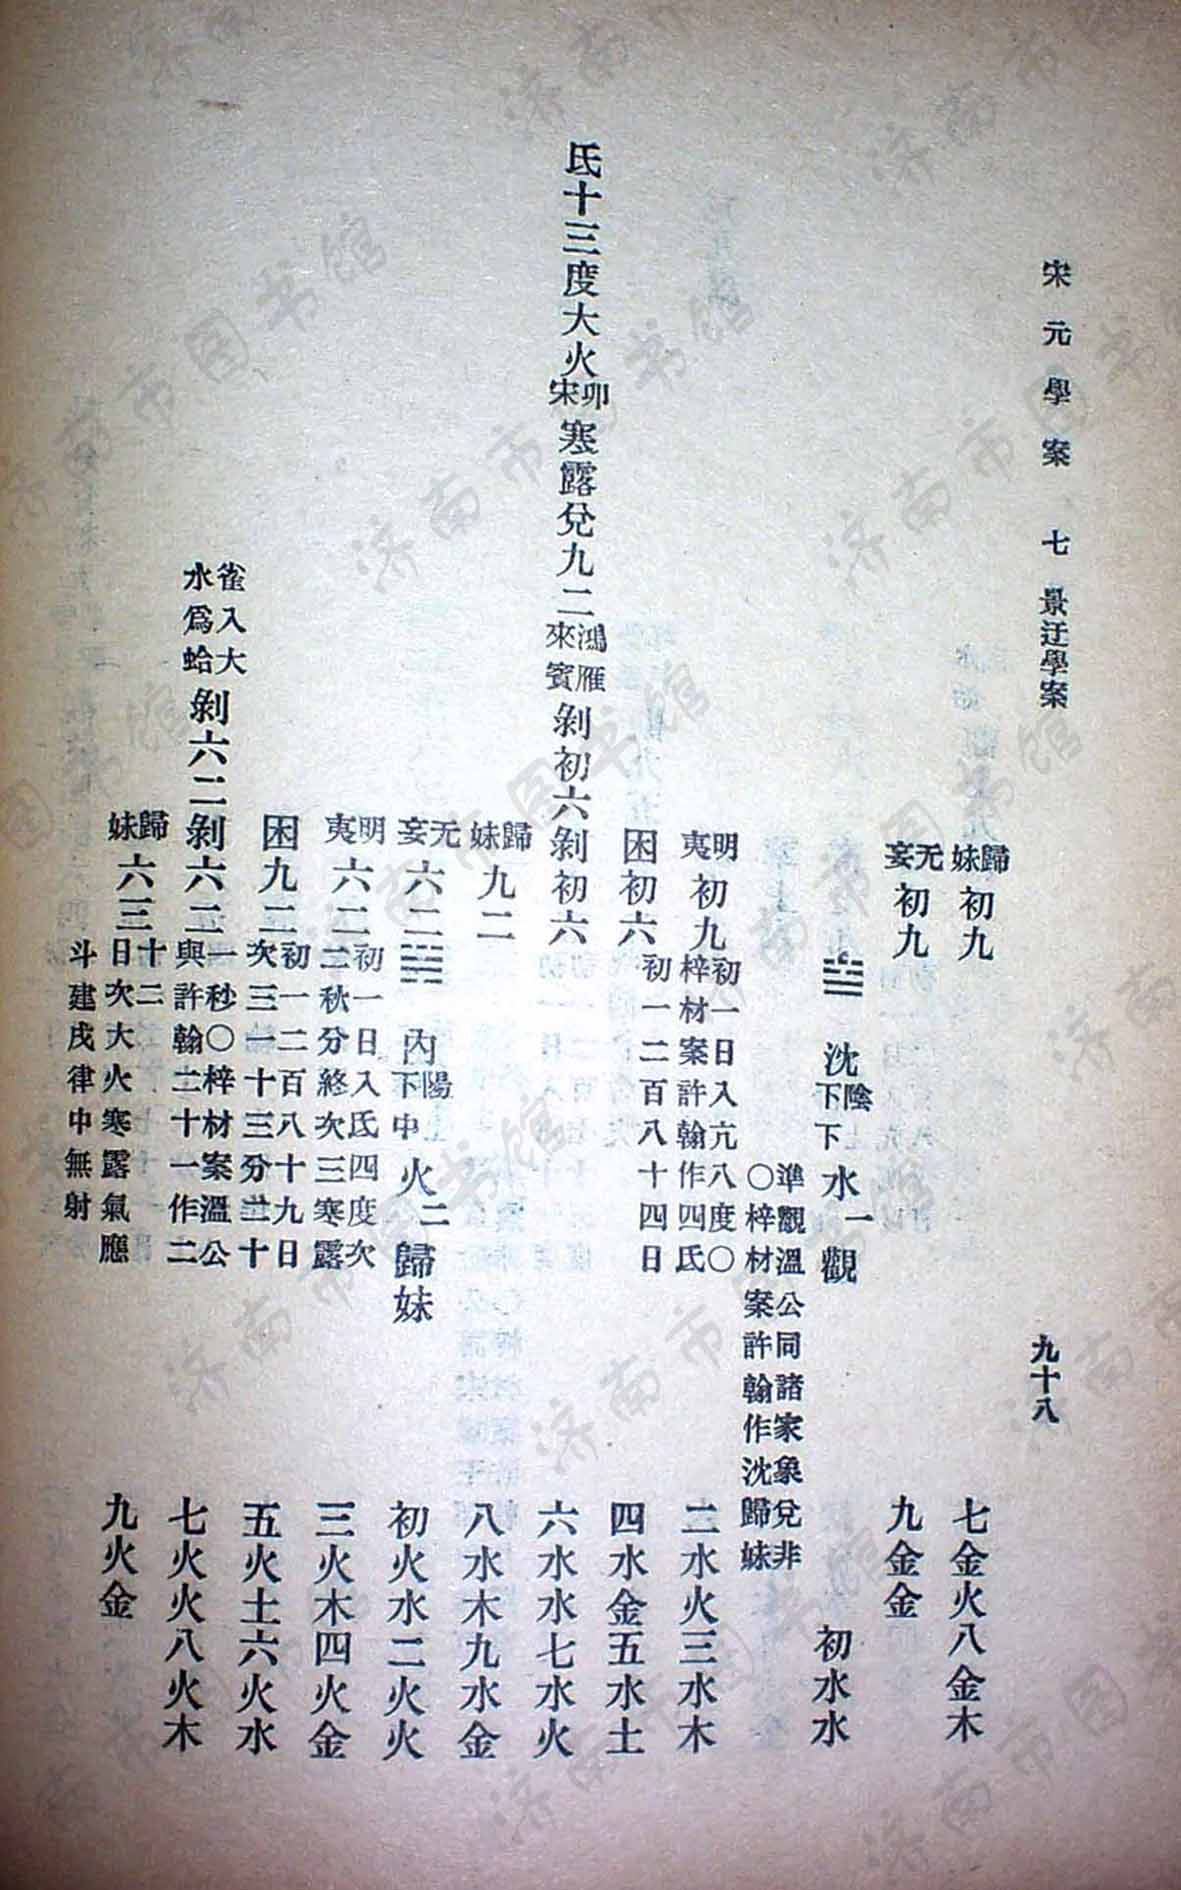 宋元學案 七 景迂學案 九十八
歸妹初九 七金火八金木
无妄初九 九金金
沈陰下下水一觀 初水水
準觀溫公同諸家象兌非
〇梓材案許翰作沈歸妹
明夷初九初一日入亢八度〇梓材案許翰作四氐 二水火三水木
困初六初一二百八十四日 四水金五水土
氐十三度大火卯宋寒露兌九二鴻雁來賓剝初六剝初六 六水水七水火
歸妹九二 八水木九水金
无妄六二 內陽下中火二歸妹 初火水二火火
明夷六二初一日入氐四度次二秋分終次三寒露 三火木四火金
困九二初一二百八十九日次三一十三分三十 五火土六火水
雀入大水爲蛤剝六二剝六二一秒〇梓材案溫公與許翰二十一作二 七火火八火木
歸妹六三十二日次大火寒露氣應斗建戌律中無射 九火金
济南市图书馆